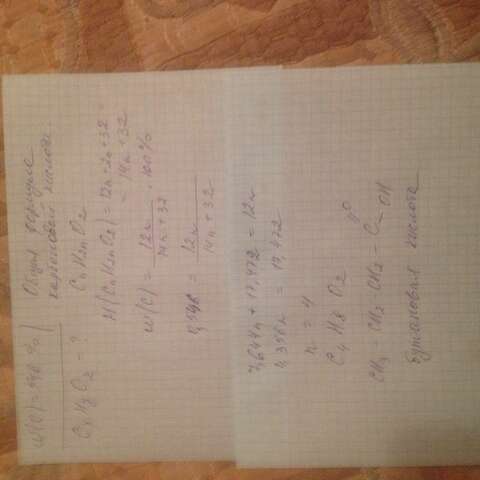 ω(C) = 54,6 %
CxHyO2 - ?
Общая формула
карбоновой кислоты
CnH2nO2
M(CnH2nO2) = 12n + 2n + 32 =
= 14n + 32
ω(C) = 12n / 14n + 32 · 100%
0,546 = 12n / 14n + 32
7,644n + 17,472 = 12n
4,356n = 17,472
n = 4
C4H8O2
O
CH3 - CH2 - CH2 - C - OH
Бутановая кислота